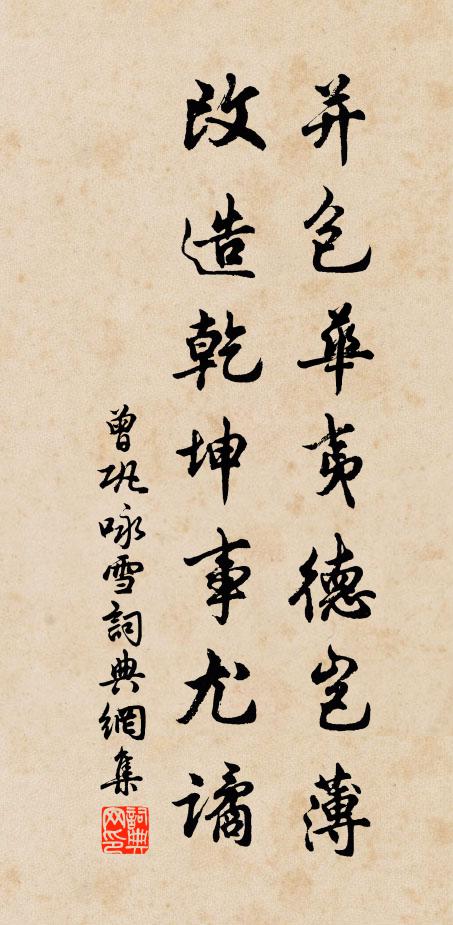 并包華夷德豈薄
改造乾坤事尤譎
曾巩咏雪詞典網集
詞典網印